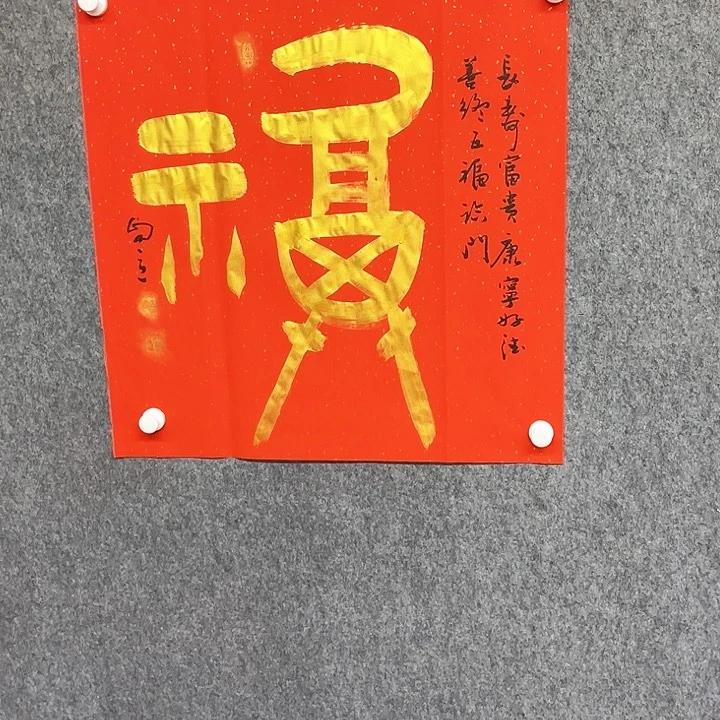 長壽富貴康寧好德
善終五福臨門
福